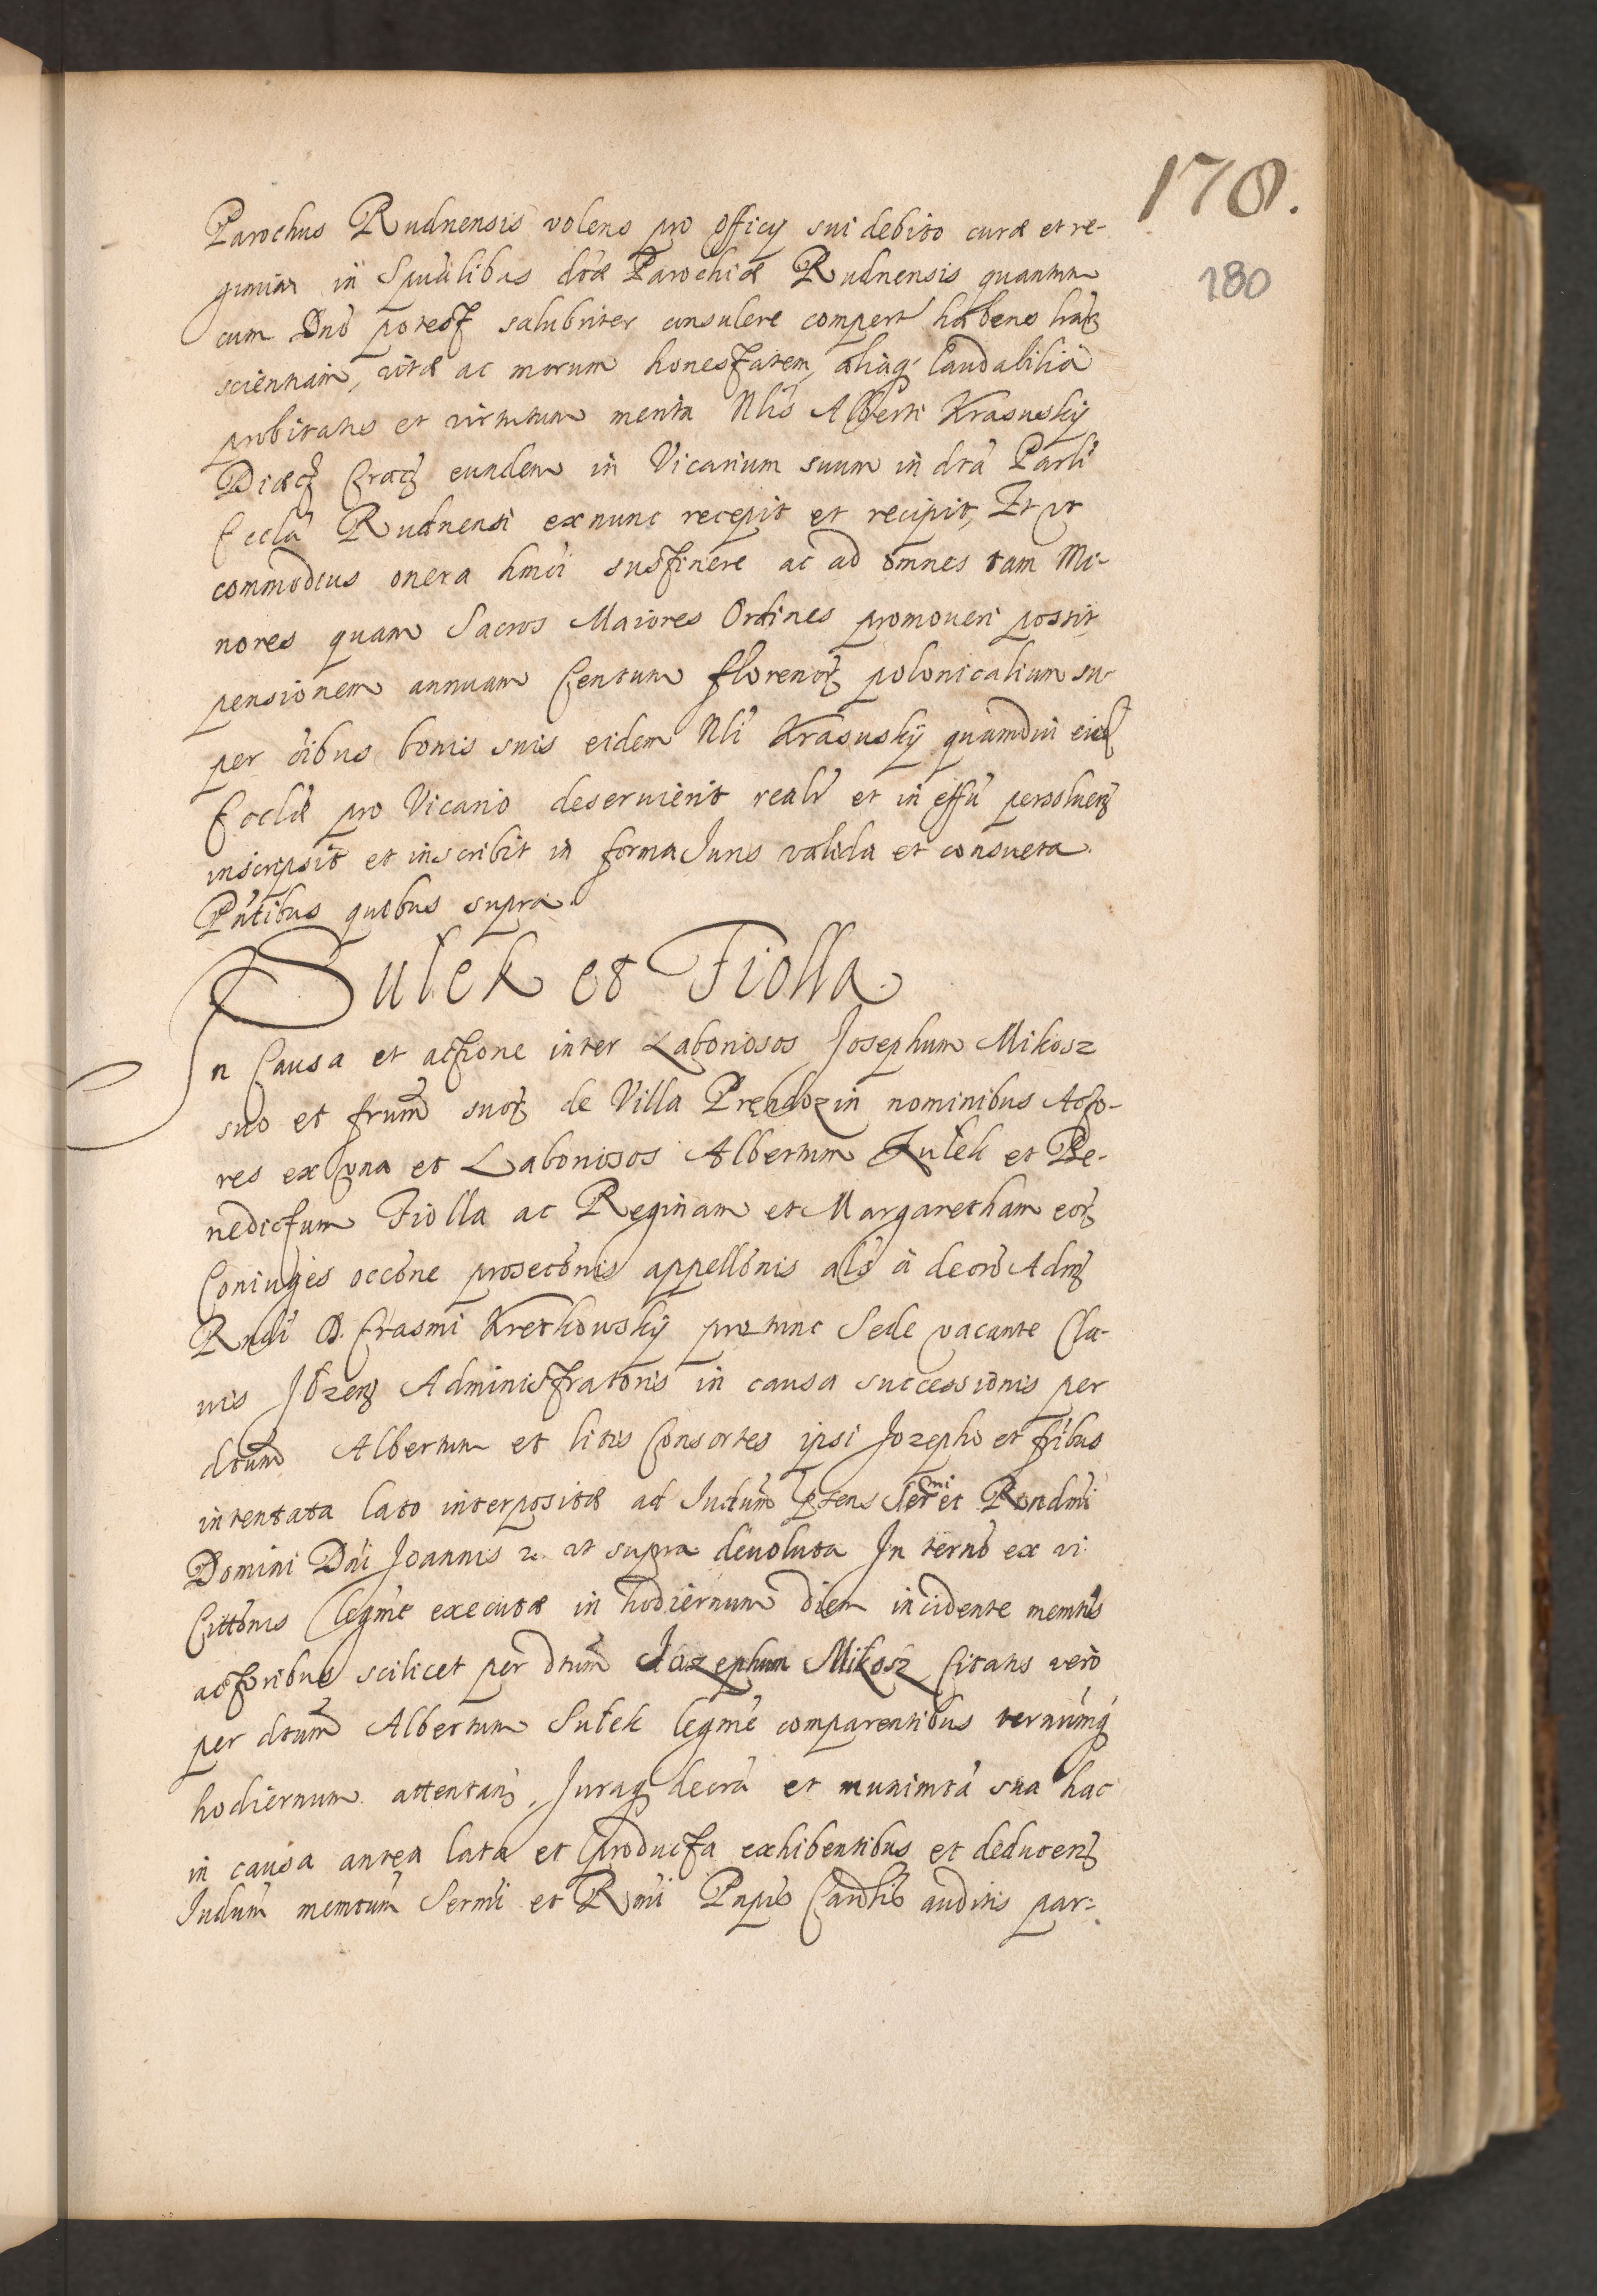 178.
180
Parochus Rudnensis volens pro officij sui debito curæ et re-
giminis in Spũalibus dc̃æ Parochiæ Rudnensis quantum
cum Dnõ potest salubriter consulere compert habens
scientiam, vitæ ac morum honestatem, aliaq; laudabilia
probitatis et virtutum merita Nlis Alberti Krasusky
Diæc Crac eundem in Vicarium suum in dc̃a Parli
Eccla Rudnensi ex nunc recepit et recipit, Et vt
commodius onera hmõi sustinere ac ad omnes tam Mi-
nores quam Sacros Maiores Ordines promoueri possit
pensionem annuam Centum florenor polonicalium su-
per oibus bonis suis eidem Nli Krasusky quamdiu eid
Ecclæ pro Vicario deseruierit realr et in effu persoluen
inscripsit et inscribit in forma Juris valida et consueta.
Pntibus quibus supra
Sulek et Fiolla.
In Causa et actione inter Laboriosos Josephum Mikosz
suo et frum suor de Villa Prendozin nominibus Acto-
res ex vna et Laboriosos Albertum Sulek et Be-
nedictum Fiolla ac Reginam et Margaretham eor
Coniuges occone prosecõnis appellõnis als à decrõ Adm
Rndi D. Erasmi Kretkowsky pro tunc Sede vacante Cla-
uis Ilzen Administratoris in causa successionis per
dcum Albertum et litis Consortes ipsi Jozepho et fribus
intentata lato interpositæ ad Judum ptens Sermi et Rendmi
Domini Dni Joannis &c. vt supra deuoluta In termo ex vi
Cittonis legme executæ in hodiernum diem incidente memtis
actoribus scilicet per dtum Jozephum Mikosz Citatis verò
per dtum Albertum Sulek legme comparentibus terminumq
hodiernum attentan, Juraq decra et munimta sua hac
in causa antea lata et producta exhibentibus et deducen
Judum memtum Sermi et Rmi Pnpis Cardlis auditis par-